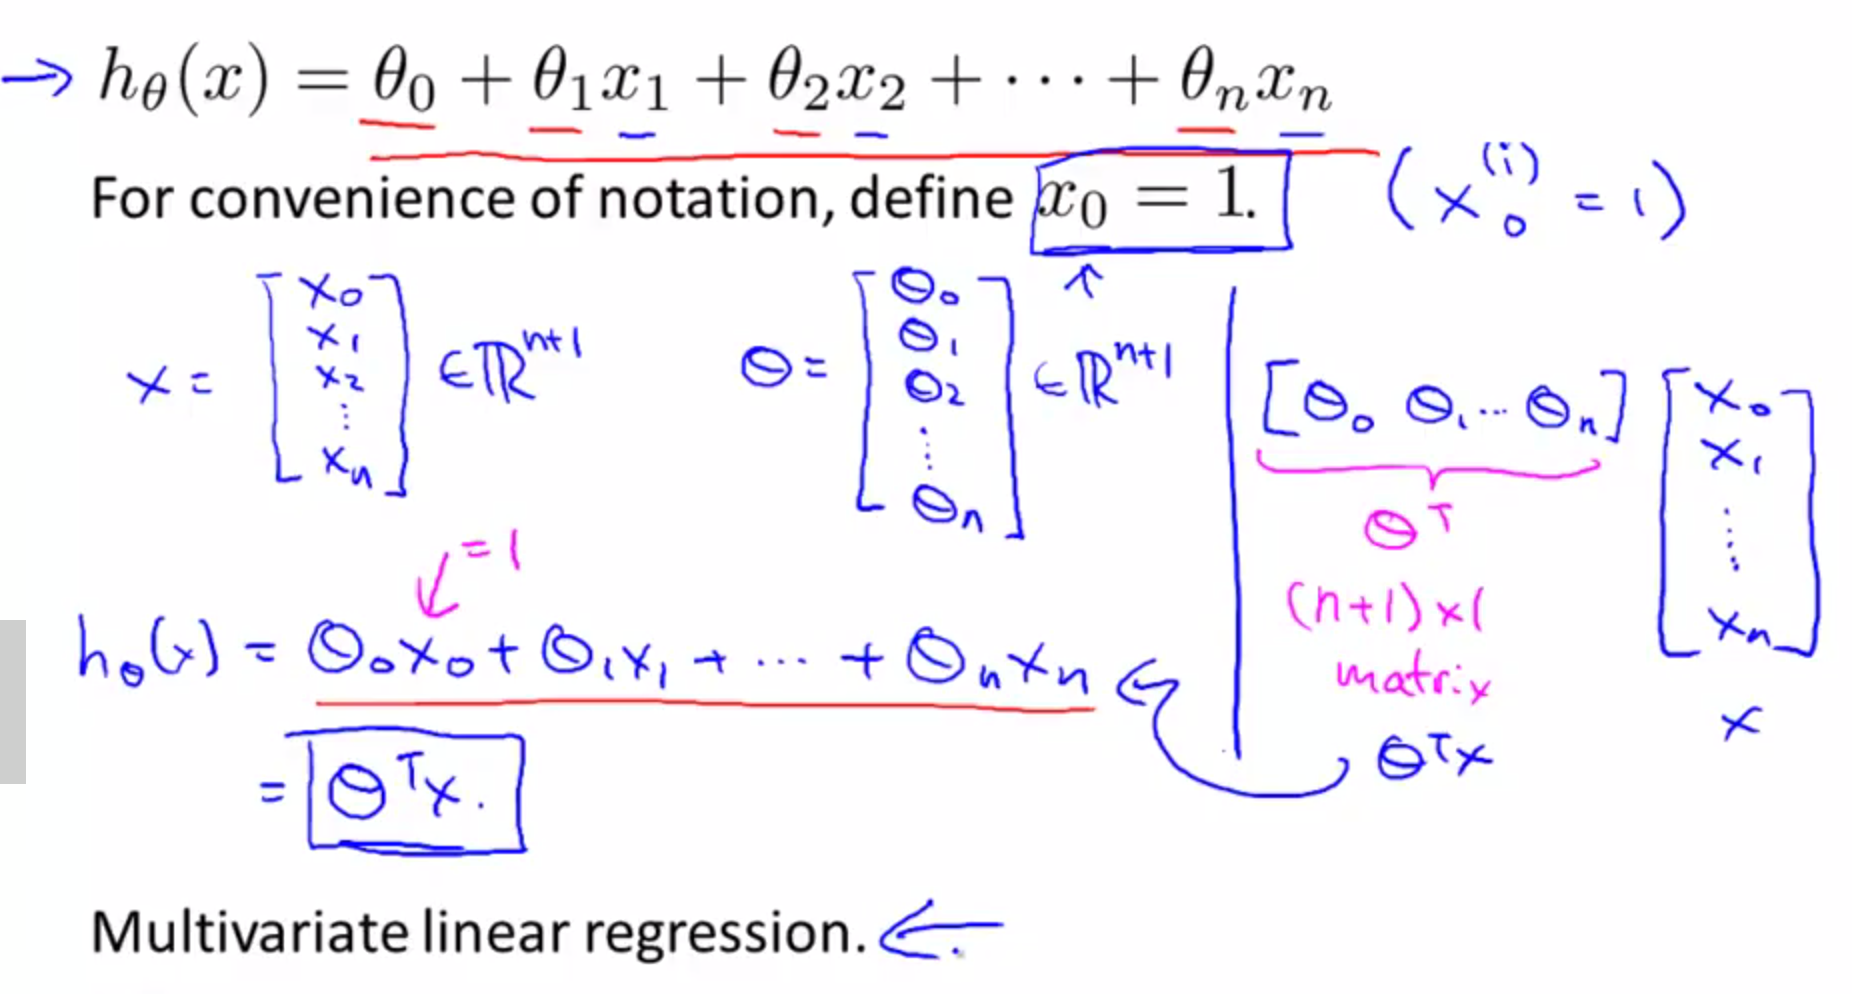 → hθ(x) = θ0 + θ1x1 + θ2x2 + ··· + θnxn
For convenience of notation, define x0 = 1. (x0^(i) = 1)
x = [x0 x1 x2 ⋮ xn] ∈ ℝ^(n+1)
θ = [θ0 θ1 θ2 ⋮ θn] ∈ ℝ^(n+1)
↑
[θ0 θ1 ... θn] [x0 x1 ⋮ xn]
θ^T
(n+1) x 1
matrix
θ^T x
x
= 1
hθ(x) = θ0x0 + θ1x1 + ... + θnxn ←
= θ^T x.
Multivariate linear regression. ←